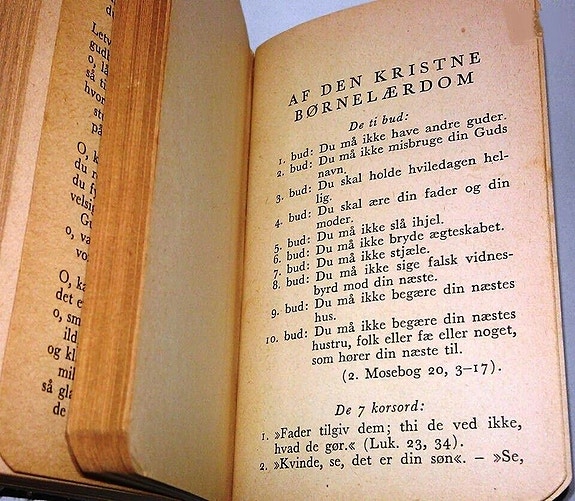 Letv
gudl
o, lå
så ti
hvor
st
på
O, k
du n
du f
velsi
Gu
o, va
vo
O, ka
det e
o, sm
ild
og kl
mil
så gla
de
AF DEN KRISTNE
BØRNELÆRDOM
De ti bud:
1. bud: Du må ikke have andre guder.
2. bud: Du må ikke misbruge din Guds
navn.
3. bud: Du skal holde hviledagen hel-
lig.
4. bud: Du skal ære din fader og din
moder.
5. bud: Du må ikke slå ihjel.
6. bud: Du må ikke bryde ægteskabet.
7. bud: Du må ikke stjæle.
8. bud: Du må ikke sige falsk vidnes-
byrd mod din næste.
9. bud: Du må ikke begære din næstes
hus.
10. bud: Du må ikke begære din næstes
hustru, folk eller fæ eller noget,
som hører din næste til.
(2. Mosebog 20, 3–17).
De 7 korsord:
1. »Fader tilgiv dem; thi de ved ikke,
hvad de gør.« (Luk. 23, 34).
2. »Kvinde, se, det er din søn«. – »Se,